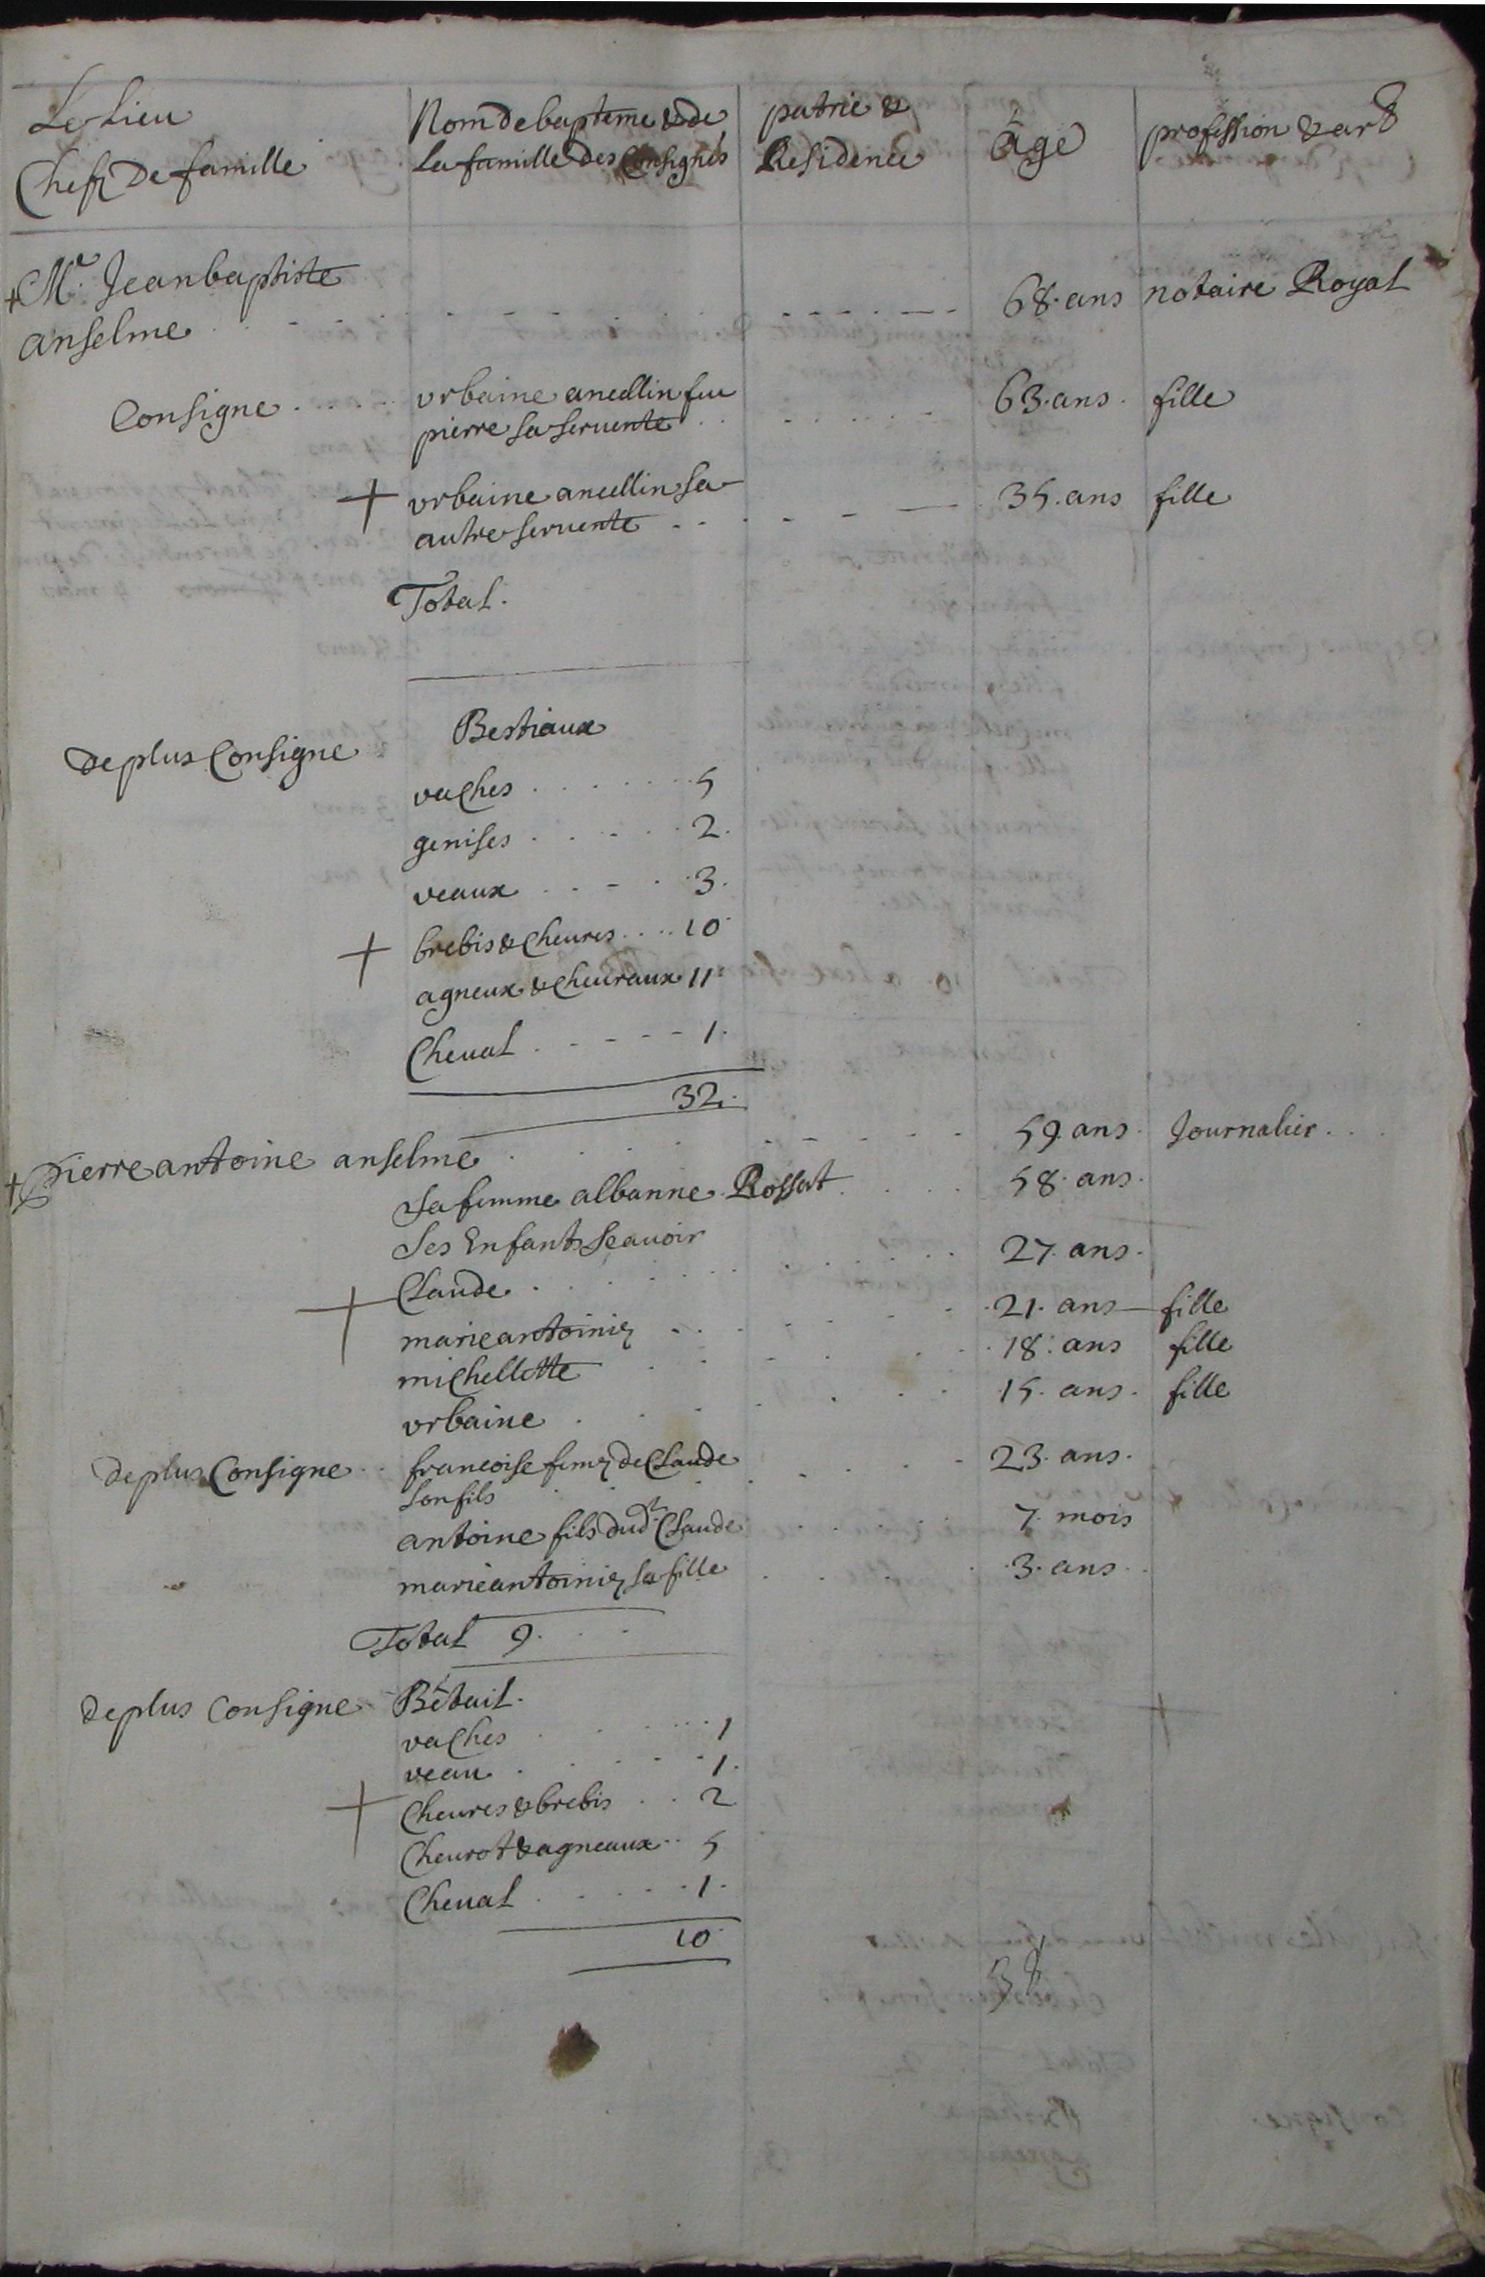 Le Lieu
Chefz De famille
Nom De bapteme & de
La famille Des Consignés
patrie &
Residence
âge
profession & art
+ Me. Jeanbaptiste
anselme . . . . . . . . 68. ans notaire Royal
Consigne . . . . vrbaine ancellin feu
pierre sa seruente . . . . . . 63. ans. fille
+ vrbaine ancellin sa
autre seruente . . . . . 35. ans fille
Total.
de plus Consigne Bestiaux
vaches . . . . . . 5
genises . . . . . 2.
veaux . . . . . 3.
+ brebis & Cheures . . . . 10
agneux & Cheuraux 11
Cheual . . . . . 1.
32.
+ Pierre antoine anselme . . . . . . 59 ans. Journalier . . .
Sa femme albanne Rossat . . . . 58. ans.
Ses Enfants Scauoir
+ Claude . . . . . . . . 27. ans.
marie antoiniz . . . . . . . 21. ans fille
michellette . . . . . . 18. ans fille
vrbaine . . . . . . 15. ans. fille
de plus Consigne . . francoise femz de Claude
son fils . . . . . . 23. ans.
antoine fils dud.t Claude . . . . . 7. mois
marie antoiniz sa fille . . . . . 3. ans . .
Total 9. . .
de plus Consigne Bétail.
vaches . . . . . . 1
veau . . . . . 1.
+ Cheures & brebis . . 2
Cheurot & agneaux . . 5
Cheual . . . . . 1.
10